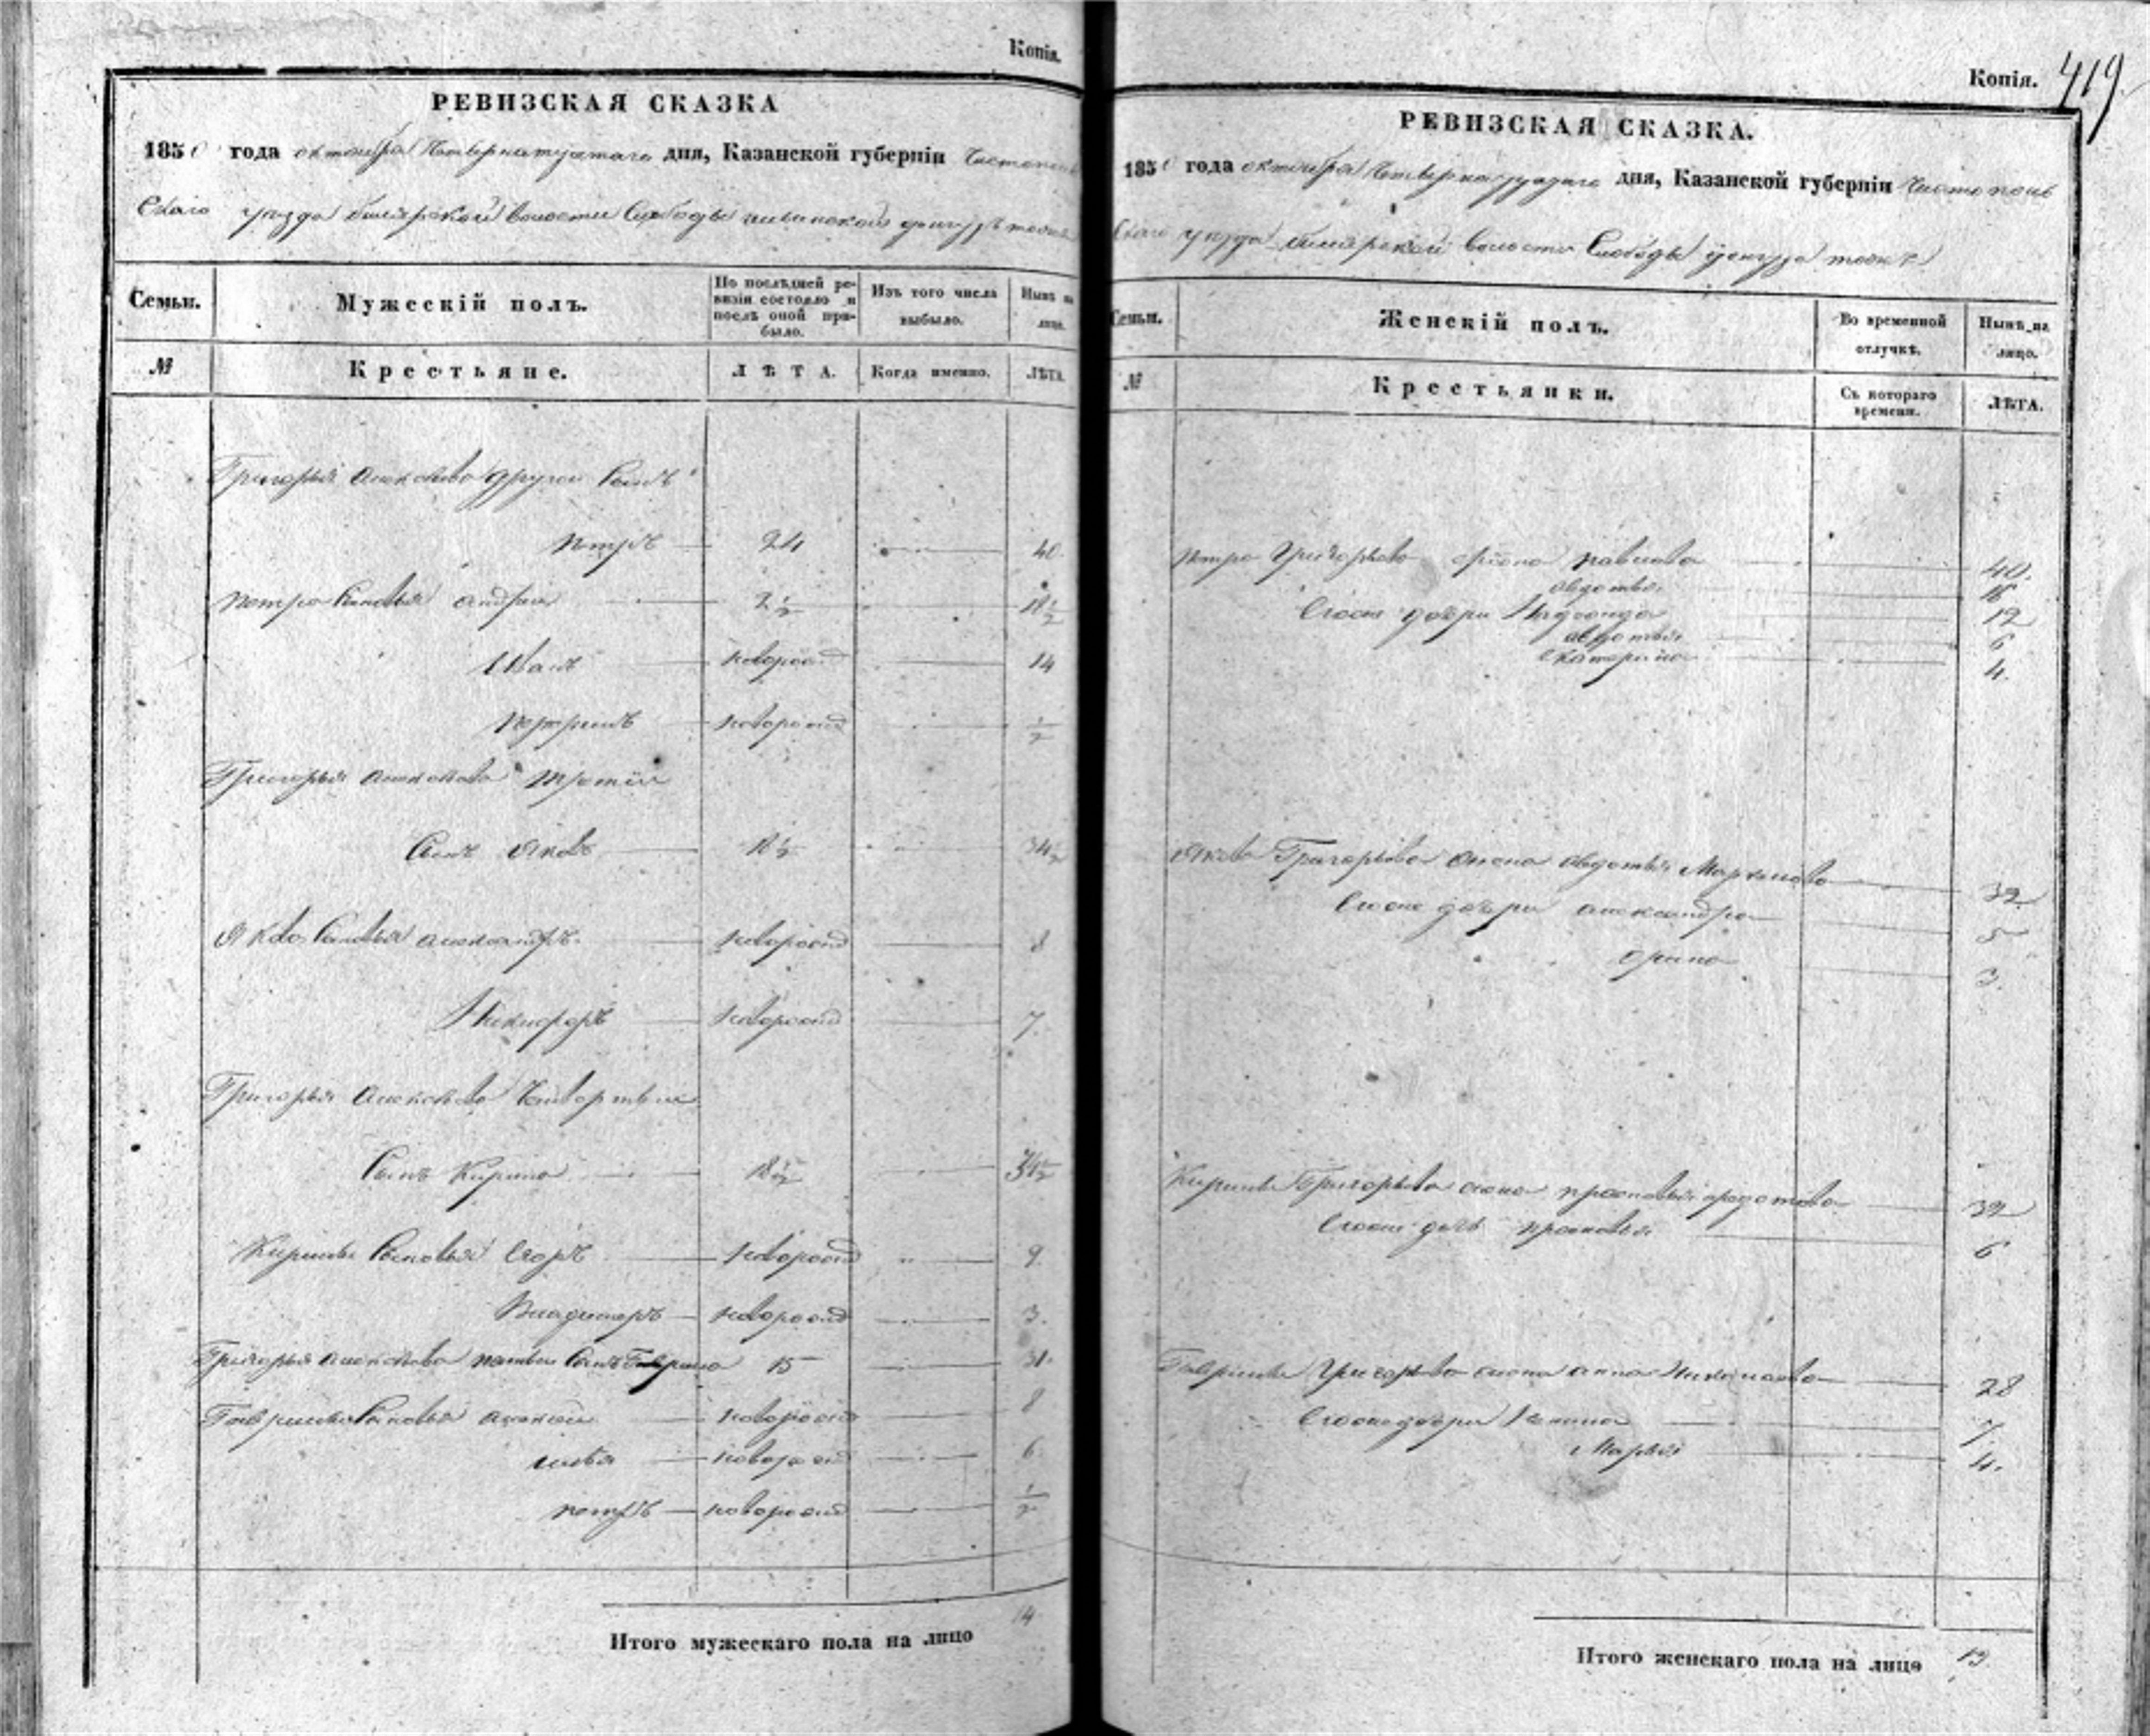 Копія.
РЕВИЗСКАЯ СКАЗКА
1850 года октября дня, Казанской губерніи Чистополь
скаго уѣзда билярской волости Слободы
Семьи. Мужескій полъ. По послѣдней ре-визіи состояло и послѣ оной при-было. Изъ того числа выбыло. Нынѣ на лицо.
№ Крестьяне. ЛѢТА. Когда именно. ЛѢТА.
Григорья Алексѣева другой Сынъ
Петръ 24 40
Петра Сыновья андрей 2½ 18½
Иванъ новорожд 14
новорожд ½
Григорья алексѣева третій
Сынъ Яковъ 18½ 34½
Якова Сыновья александръ новорожд 8
Никифоръ новорожд 7.
Григорья Алексѣева Четвертый
Сынъ Кирила 18½ 34½
Кирилы Сыновья Егоръ новорожд 9.
Владимеръ новорожд 3.
Григорья алексѣева пятый Сынъ Гаврила 15 31.
Гаврилы Сыновья алексей новорожд 8
илья новорожд 6
петръ новорожд ½
Итого мужескаго пола на лицо 14
Копія. 419
РЕВИЗСКАЯ СКАЗКА.
1850 года октября дня, Казанской губерніи Чистополь
скаго уѣзда билярской волости Слободы
Семьи. Женскій полъ. Во временной отлучкѣ. Нынѣ на лицо.
№ Крестьянки. Съ котораго времени. ЛѢТА.
Петра Григорьева жена павлова 40.
авдотья 16
Егоже дочери Надежда 12
авдотья 6
екатерина 4.
Якова Григорьева жена авдотья 32
Егоже дочери александра 5
орина 3.
Кирилы Григорьева жена прасковья федотова 32
Егоже дочь прасковья 6
Гаврилы Григорьева жена анна Николаева 28
Егоже дочери 7.
Марья 4.
Итого женскаго пола на лицо 13.